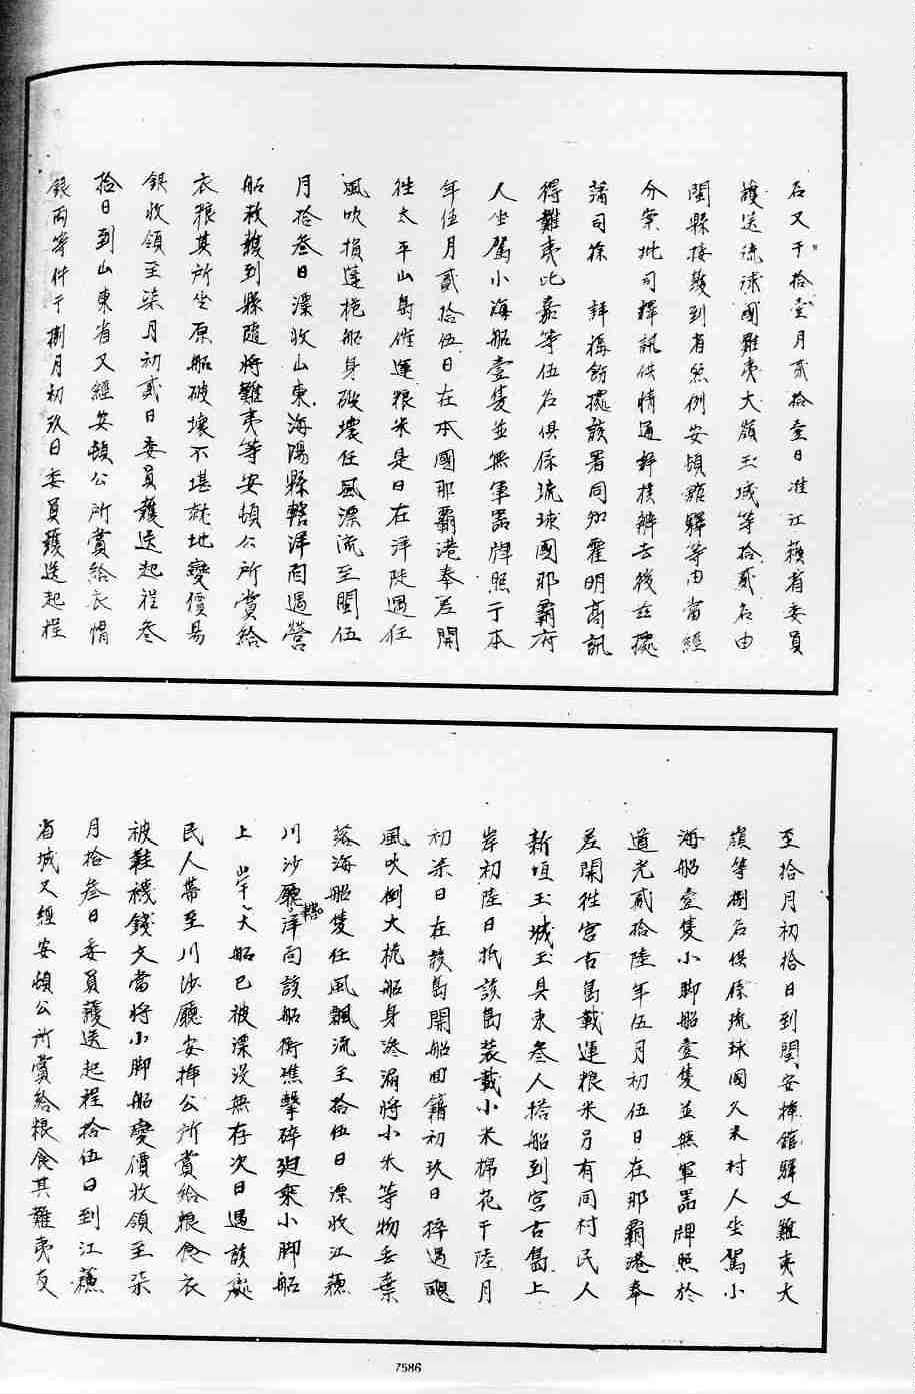 名又于拾壹月貳拾壹日准江蘓省委員
護送流球國難夷大嶺玉城等拾貳名由
閩縣接護到省照例安頓館驛等由當經
分案批司譯訊供情通詳核辨去後玆據
藩司徐 詳稱飭據該署同知霍明高訊
得難夷比嘉等伍名俱係琉球國那霸府
人坐駕小海船壹隻並無軍器牌照于本
年伍月貳拾伍日在本國那霸港奉差開
徃太平山島催運粮米是日在洋陡遇狂
風吹損蓬桅船身破壞任風漂流至閏伍
月拾叁日漂收山東海陽縣轄洋面遇營
船救護到縣隨將難夷等安頓公所賞給
衣粮其所坐原船破壞不堪就地變價易
銀收領至柒月初貳日委員護送起程叁
拾日到山東省又經安頓公所賞給衣帽
銀両等件于捌月初玖日委員護送起程
至拾月初拾日到閩安揷館驛又難夷大
嶺等捌名俱係琉球國久米村人坐駕小
海船壹隻小脚船壹隻並無軍器牌照於
道光貳拾陸年伍月初伍日在那霸港奉
差開徃宮古島載運粮米另有同村民人
新垣玉城玉具末叁人搭船到宮古島上
岸初陸日抵該島裝載小米棉花于陸月
初柒日在該島開船囬籍初玖日猝遇颶
風吹倒大桅船身滲漏將小米等物丢棄
落海船隻任風飄流至拾伍日漂收江蘓
川沙廳轄洋面該船衝礁擊碎廻乘小脚船
上岸大船已被漂沒無存次日遇該處
民人帶至川沙廳安揷公所賞給粮食衣
被鞋襪錢文當將小脚船變價收領至柒
月拾叁日委員護送起程拾伍日到江蘓
省城又經安頓公所賞給粮食其難夷友
7586